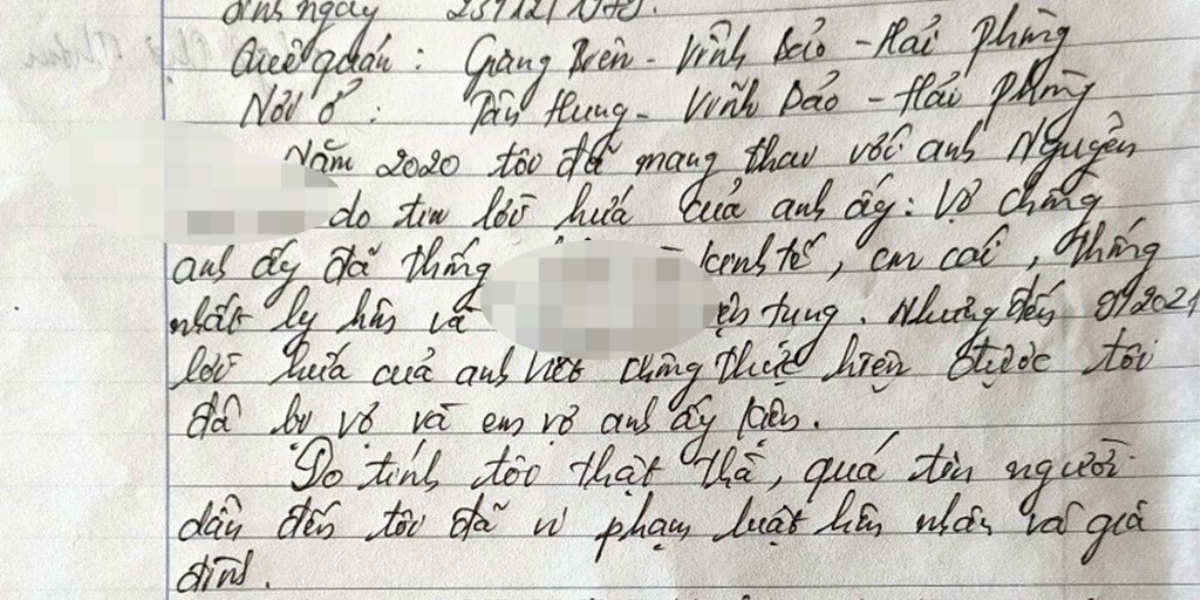 Sinh ngày
Quê quán: Giang Biên - Vĩnh Bảo - Hải Phòng
Nơi ở: Tân Hưng - Vĩnh Bảo - Hải Phòng
Năm 2020 tôi đã mang thai với anh Nguyễn
do tin lời hứa của anh ấy: Vợ chồng
anh ấy đã thống kinh tế, con cái, thống
nhất ly hôn và tụng. Nhưng đến 9/2021
lời hứa của anh chồng thực hiện được tôi
đã bị vợ và em vợ anh ấy kiện.
Do tính tôi thật thà, quá tin người
dẫn đến tôi đã vi phạm luật hôn nhân và gia
đình.